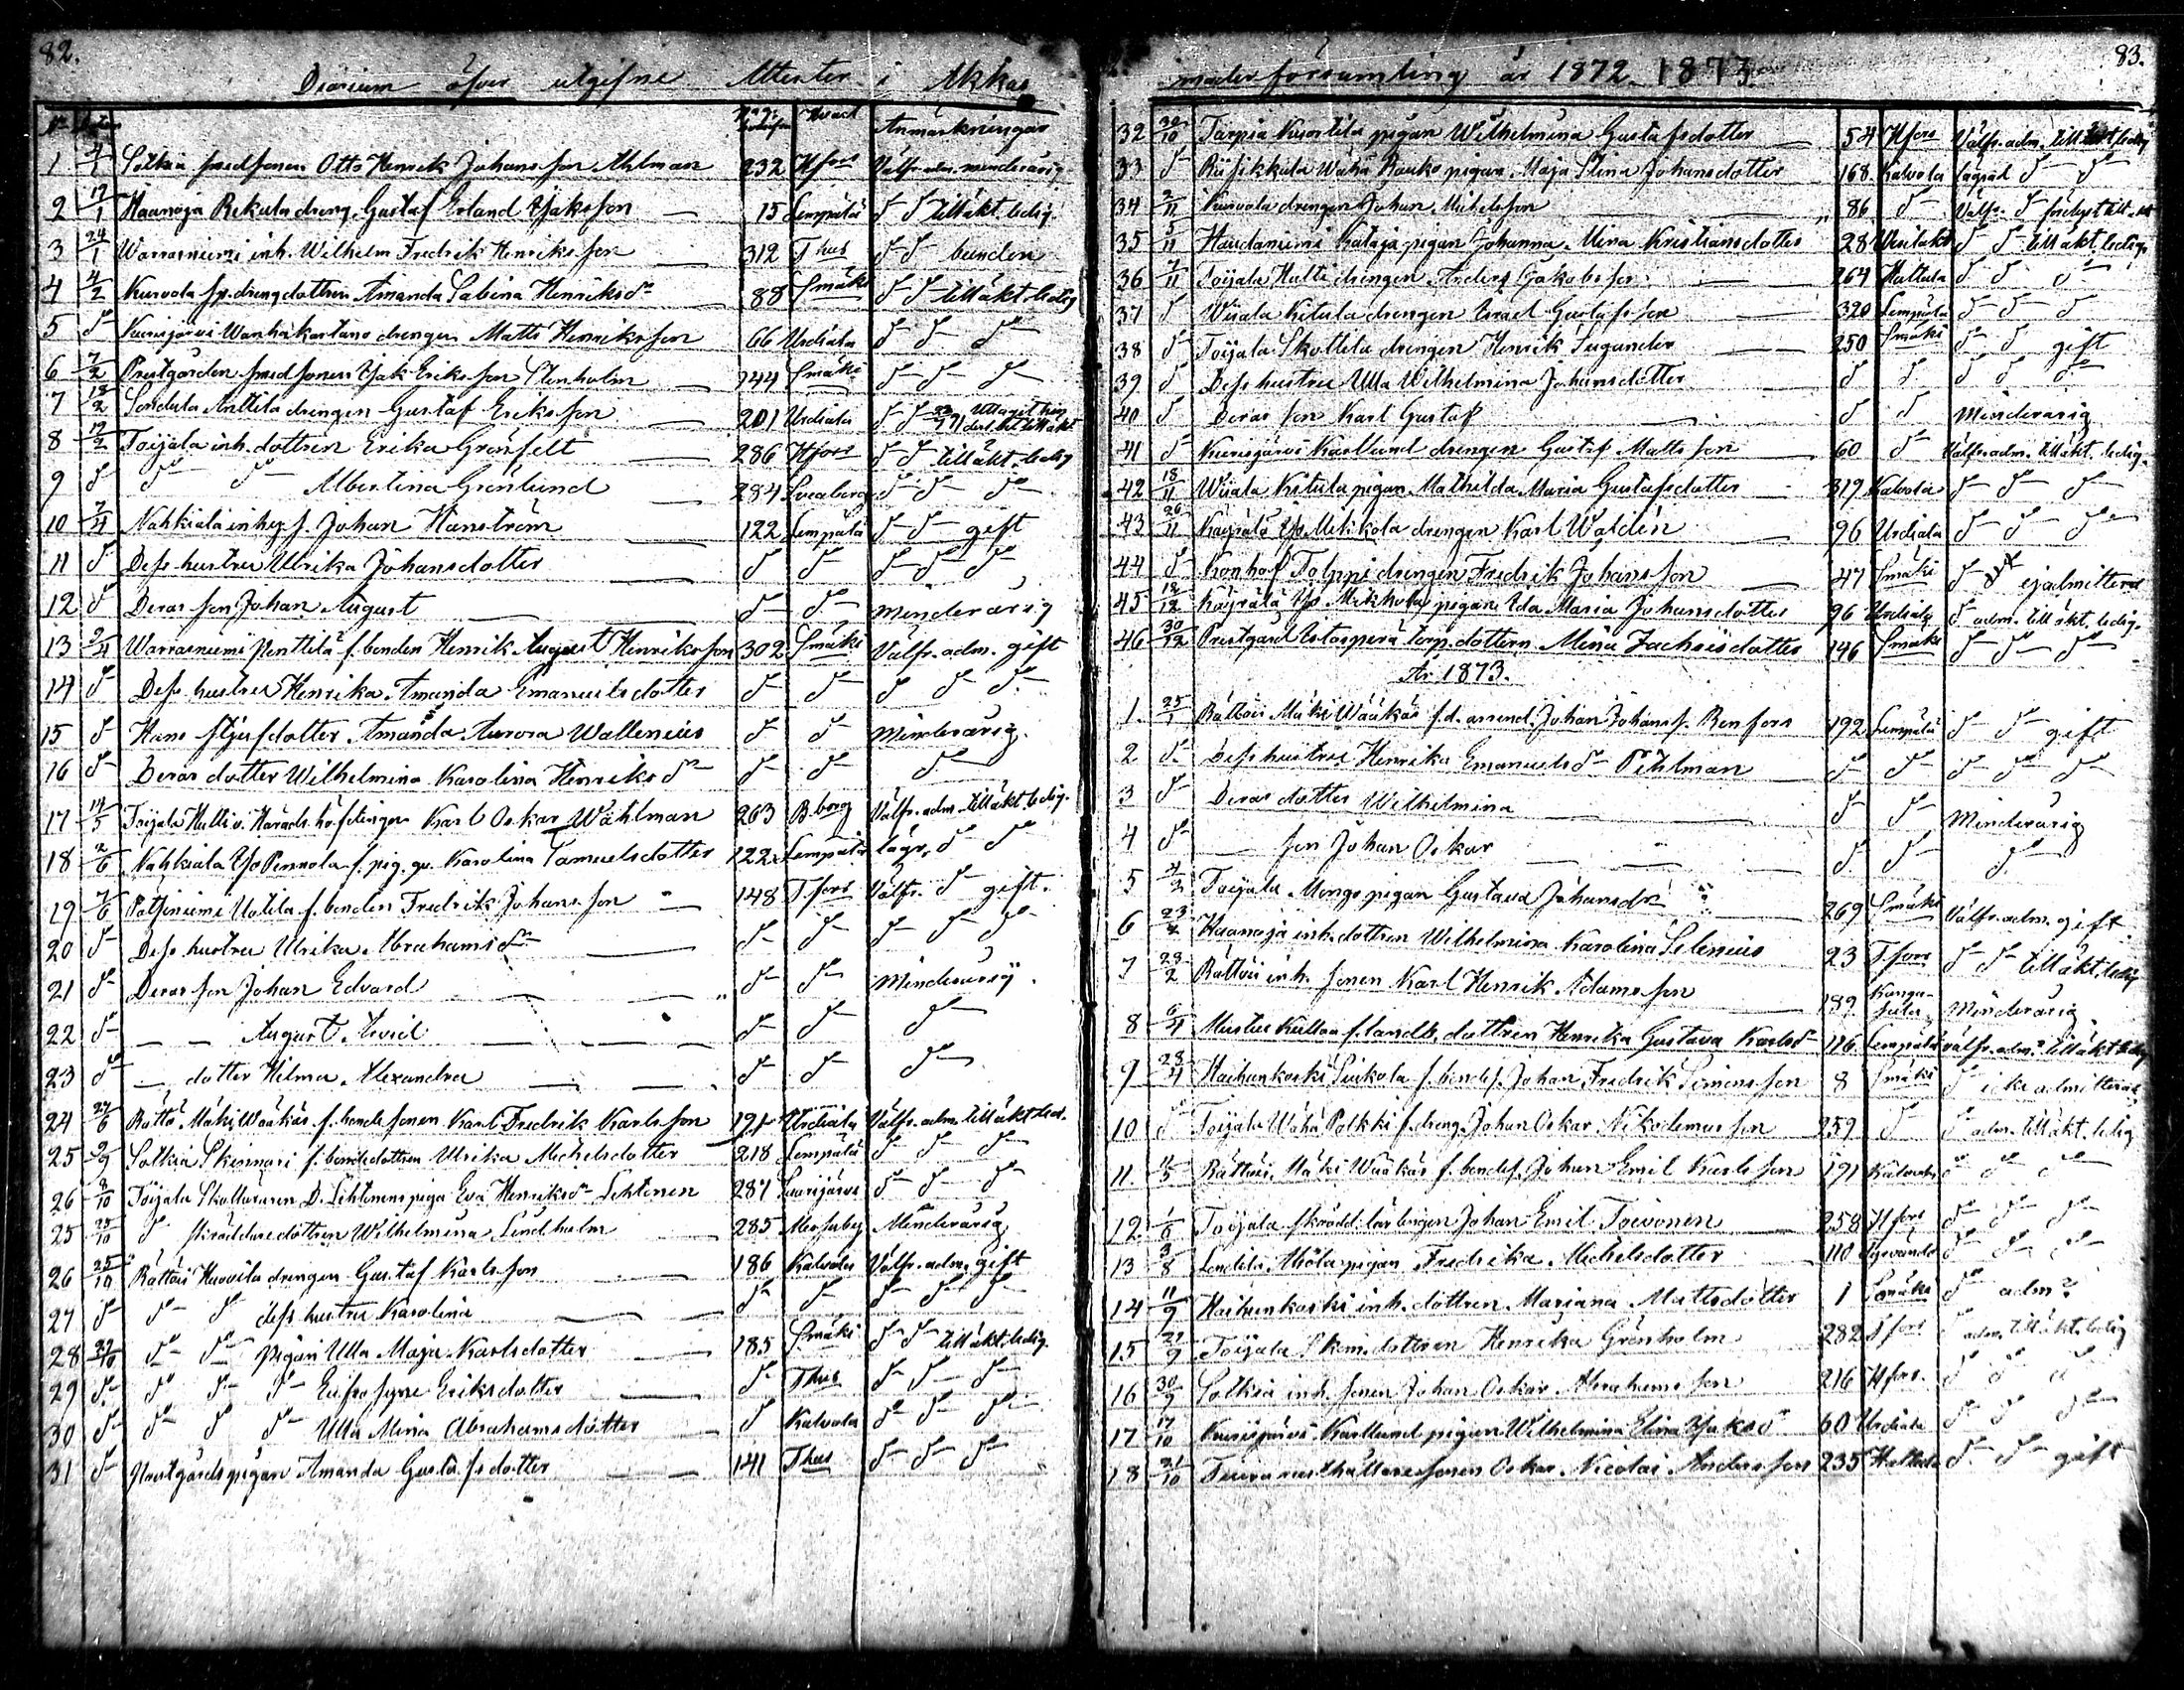 82.
Diarium öfver utgifne Attester i Akkas
No pag. i Kboken Hvart Anmärkningar
1 4/1 Sotkia smedsonen Otto Henrik Johansson Ahlman 232 Hfors Välfr. adm. minderårig
2 17/1 Haanoja Rekola dreng. Gustaf Erland Isaksson 15 Lempälä d:o d:o till äkt. ledig.
3 24/1 Warrasniemi inh. Wilhelm Fredrik Henriksson 312 Thus d:o d:o bunden
4 4/2 Kurvola sp. drengdottren Amanda Sabina Henriksd:r 88 Smäki d:o d:o till äkt. ledig
5 d:o Kurisjärvi Wanhakartano drengen Matts Henriksson 66 Urdiala d:o d:o d:o
6 7/2 Prestgården smedsonen Isak Eriksson Stenholm 144 Smäki d:o d:o d:o
7 12/2 Sondula Anttila drengen Gustaf Eriksson 201 Urdiala d:o d:o Uttagit hinderslöst till äkt
8 19/2 Toijala inh. dottren Erika Grönfelt 286 Hfors d:o d:o till äkt. ledig
9 d:o d:o d:o Albertina Grönlund 284 Sveaborg d:o d:o d:o
10 2/4 Nahkiala inhys f. Johan Hanström 122 Lempälä d:o d:o gift
11 d:o Dess hustru Ulrika Johansdotter d:o d:o d:o d:o d:o
12 d:o Deras son Johan August d:o d:o minderårig
13 2/4 Warrasniemi Penttilä f. bonden Henrik August Henriksson 302 Smäki Välfr. adm. gift
14 d:o Dess hustru Henrika Amanda Emanuelsdotter d:o d:o d:o d:o d:o
15 d:o Hans styfdotter Amanda Aurora Wallenius d:o d:o Minderårig.
16 d:o Deras dotter Wilhelmina Karolina Henriksd:r d:o d:o d:o
17 14/5 Toijala Hulli v. Häradshöfdingen Karl Oskar Wåhlman 263 B.borg Välfr. adm. till äkt. ledig.
18 2/6 Nahkiala Yso Pennola f. pig. qv. Karolina Samuelsdotter 122 Lempälä lägr. d:o d:o
19 7/6 Potjiniemi Uotila f. bonden Fredrik Johansson 148 T.fors Välfr. d:o gift.
20 d:o Dess hustru Ulrika Abrahamsd:r d:o d:o d:o d:o d:o
21 d:o Deras son Johan Edvard d:o d:o Minderårig.
22 d:o August Arvid d:o d:o d:o
23 d:o dotter Hilma Alexandra d:o d:o d:o
24 27/6 Rättö Mäki Wääkäs f. bondesonen Karl Fredrik Karlsson 191 Urdiala Välfr. adm. till äkt led.
25 2/9 Sotkia Skinnari f. bondedottren Ulrika Michelsdotter 218 Lempälä d:o d:o d:o
26 2/10 Toijala Skollararen D. Lehtonens piga Eva Henriksd:r Lehtonen 287 Saarijärvi d:o d:o d:o
25 25/10 d:o skräddaredottren Wilhelmina Lindholm 285 Messuby Minderårig
26 25/10 Rättöis Huovila drengen Gustaf Karlsson 186 Kalvola Välfr. adm. gift
27 d:o d:o d:o dess hustru Karolina d:o d:o d:o d:o d:o
28 27/10 d:o d:o pigan Ulla Maja Karlsdotter 185 Smäki d:o d:o till äkt. ledig.
29 d:o d:o d:o d:o Eufrosyne Eriksdotter d:o Thus d:o d:o d:o
30 d:o d:o d:o d:o Ulla Mina Abrahamsdotter d:o Kalvola d:o d:o d:o
31 d:o Prestgårdspigan Amanda Gustafsdotter 141 Thus d:o d:o d:o
83.
moderförsamling år 1872. 1873.
32 30/10 Tarpia Kuortila pigan Wilhelmina Gustafsdotter 54 Hfors Välfr. adm. till äkt ledig
33 d:o Riisikkala Wähä Rauko pigan Maja Stina Johansdotter 168. Kalvola lägrad d:o d:o
34 2/11 Kurvola drengen Johan Michelsson 86 d:o Välfr. d:o
35 5/11 Haudaniemi Kataja pigan Johanna Mina Kristiansdotter 28 Vesilaks d:o d:o till äkt. ledig.
36 7/11 Toijala Hulli drengen Anders Jakobsson 264 Hattula d:o d:o d:o
37 d:o Wiiala Kitula drengen Israel Gustafsson 320 Lempälä d:o d:o d:o
38 d:o Toijala Skottila drengen Henrik Tugander 250 Smäki d:o d:o gift
39 d:o Dess hustru Ulla Wilhelmina Johansdotter d:o d:o d:o d:o d:o
40 d:o Deras son Karl Gustaf d:o d:o Minderårig
41 d:o Kurisjärvi Karllund drengen Gustaf Mattsson 60 d:o Välfr. adm. till äkt. ledig.
42 18/11 Wiiala Kitula pigan Mathilda Maria Gustafsdotter 319 Kalvola d:o d:o d:o
43 26/11 Käyrälä Yso Mikkola drengen Karl Waldén 96 Urdiala d:o d:o d:o
44 d:o Konhof Tolppi drengen Fredrik Johansson 47 Smäki d:o ej admitterad
45 12/12 Käyrälä Yso Mikkola pigan Ida Maria Johansdotter 96 Urdiala d:o adm. till äkt. ledig.
46 30/12 Prestgård Ristasperä torp. dottern Mina Zachrisdotter 146 Smäki d:o d:o d:o
År 1873.
1. 25/1 Rättöis Mäki Wääkäs f.d. arrend. Johan Johanss. Renfors 192 Lempälä d:o d:o gift
2 d:o Dess hustru Henrika Emanuelsd:r Pihlman d:o d:o d:o d:o d:o
3 d:o Deras dotter Wilhelmina d:o d:o Minderårig
4 d:o son Johan Oskar d:o d:o d:o
5 4/2 Toijala Mongs pigan Gustava Johansdr 269 Smäki Välfr. adm. gift.
6 23/2 Haanoja inh. dottren Wilhelmina Karolina Selenius 23 Tfors d:o d:o till äkt. ledig
7 28/2 Rättöis inh. sonen Karl Henrik Adamsson 189. Kangasala Minderårig.
8 6/4 Mustue Kulloa f. landb. dottren Henrika Gustava Karlsd:r 116. Lempälä välfr. adm. till äkt ledig
9 28/4 Haihunkoski Siukola f. bondes. Johan Fredrik Simonsson 8 Smäki d:o icke admitterad
10 d:o Toijala Wähä Polkki f. dreng. Johan Oskar Nikodemusson 259 d:o d:o adm. till äkt. ledig
11. 11/5 Rättöis Mäki Wääkäs f. bondes. Johan Emil Karlsson 191 Kalvola d:o d:o d:o
12. 1/8 Toijala skrädd. lärlingen Johan Emil Toivonen 258 Hfors d:o d:o d:o
13 3/8 Lendilä Uhola pigan Fredrika Michelsdotter 110 Tyrvändö d:o d:o d:o
14 11/9 Haihunkoski inh. dottren Mariana Mattsdotter 1 Smäki d:o adm?
15 22/9 Toijala Skom. dottren Henrika Grönholm 282 Hfors d:o adm. till äkt. ledig
16 30/9 Sotkia inh. sonen Johan Oskar Abrahamsson 216 Hfors. d:o d:o d:o
17 17/10 Kurisjärvi Karllund pigan Wilhelmina Elina Isaksd:r 60 Urdiala d:o d:o d:o
18 21/10 rusthållaresonen Oskar Nicolai Andersson 235 Hattula d:o d:o gift